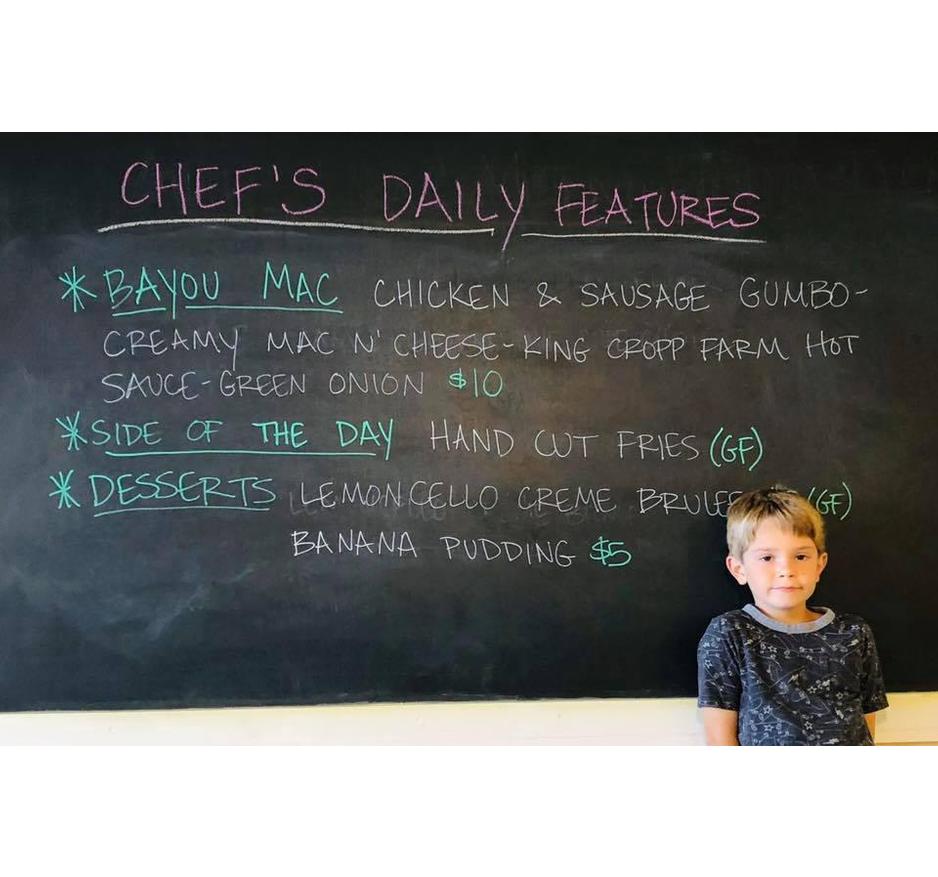 CHEF'S DAILY FEATURES
* BAYOU MAC CHICKEN & SAUSAGE GUMBO-
CREAMY MAC N' CHEESE-KING CROPP FARM HOT
SAUCE-GREEN ONION $10
* SIDE OF THE DAY HAND CUT FRIES (GF)
* DESSERTS LEMONCELLO CREME BRULEE (GF)
BANANA PUDDING $5